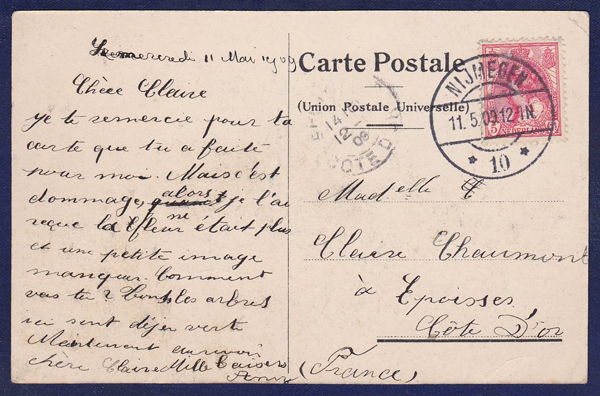 Le mercredi 11 Mai 1909
Chère Claire
je te remercie pour ta
carte que tu a faite
pour moi. Mais c'est
dommage, alors je l'ai
reçue la fleur était plus
et une petite image
manquer. Comment
vas tu? Tous les arbres
ici sont déjer verts
Maintenant au revoir
chère Claire Mille baisers
Carte Postale
(Union Postale Universelle)
NIJMEGEN
11.5.09.12-1N
10
5 NEDERLAND 5
Madelle
Claire Chaumont
à Epoisses
Côte D'or
(France)